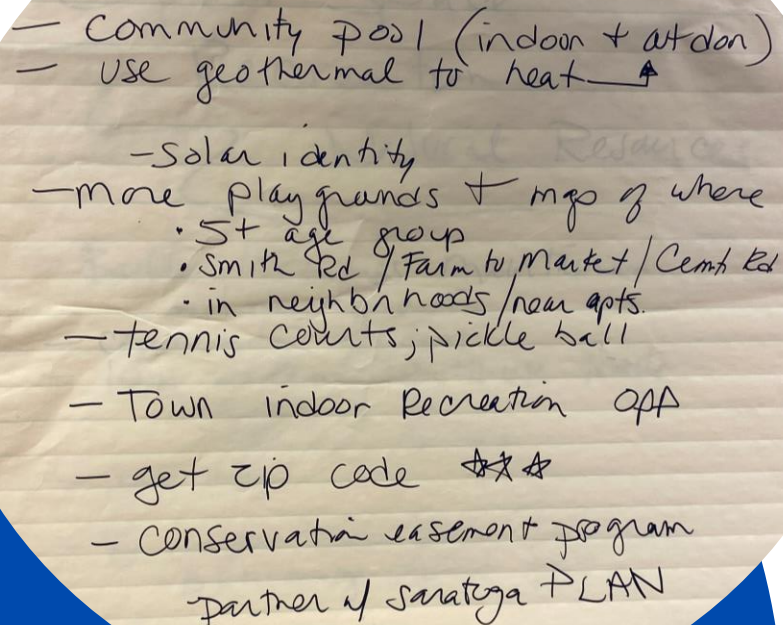 - Community pool (indoor + outdoor)
- use geothermal to heat
- Solar identity
- more playgrounds + map of where
• 5+ age group
• Smith Rd / Farm to Market / Cemt Rd
• in neighborhoods / near apts.
- tennis courts; pickle ball
- Town indoor Recreation opp
- get zip code ☆☆☆
- conservation easement program
partner w/ Saratoga PLAN